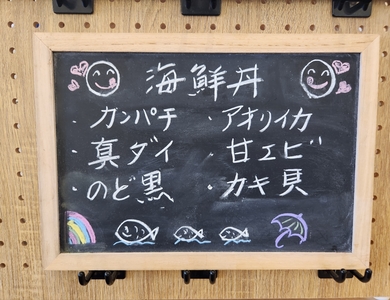 海鮮丼
・カンパチ ・アオリイカ
・真ダイ ・甘エビ
・のど黒 ・カキ貝